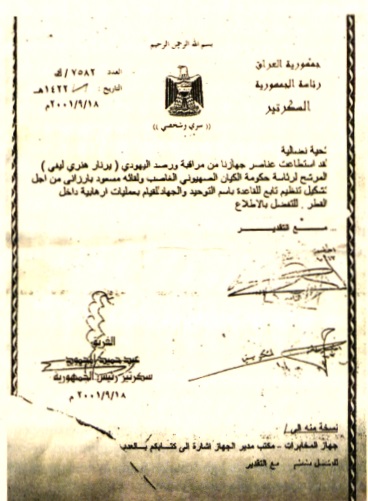 بسم الله الرحمن الرحيم
جمهورية العراق
رئاسة الجمهورية
السكرتير
العدد / ٧٥٨٢ / ك
التاريخ : / /١٤٢٢هـ
٢٠٠١/٩/١٨م
(( سري وشخصي ))
تحية نضالية
قد استطاعت عناصر جهازنا من مراقبة ورصد اليهودي ( برنار هنري ليفي )
المرشح لرئاسة حكومة الكيان الصهيوني الغاصب ولقائه مسعود بارزاني من اجل
تشكيل تنظيم تابع للقاعدة باسم التوحيد والجهاد للقيام بعمليات ارهابية داخل
القطر . للتفضل بالاطلاع
مع التقدير
الفريق
عبد حميد
سكرتير رئيس الجمهورية
٢٠٠١/٩/١٨م
نسخة منه الى /
جهاز المخابرات – مكتب مدير الجهاز اشارة الى كتابكم بالعدد
للتفضل مع التقدير